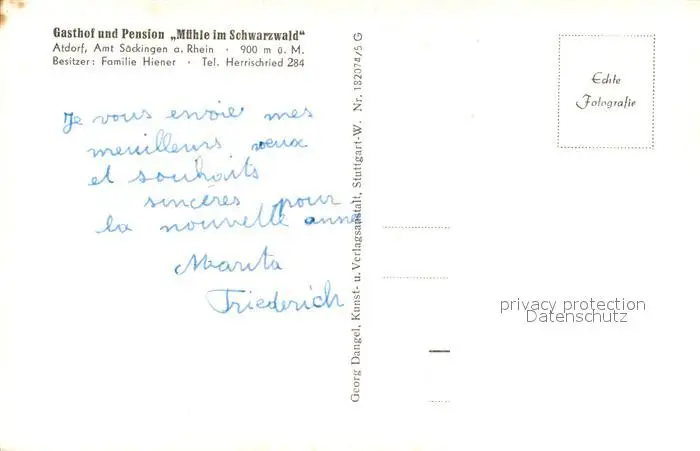 Gasthof und Pension „Mühle im Schwarzwald"
Atdorf, Amt Säckingen a. Rhein · 900 m ü. M.
Besitzer: Familie Hiener · Tel. Herrischried 284
Je vous envoie mes
meuilleurs vœux
et souhaits
sincères pour
la nouvelle anné
Marita
Friederich
Georg Dangel, Kunst- u. Verlagsanstalt, Stuttgart-W. Nr. 182074/5 G
Echte
Fotografie
privacy protection
Datenschutz